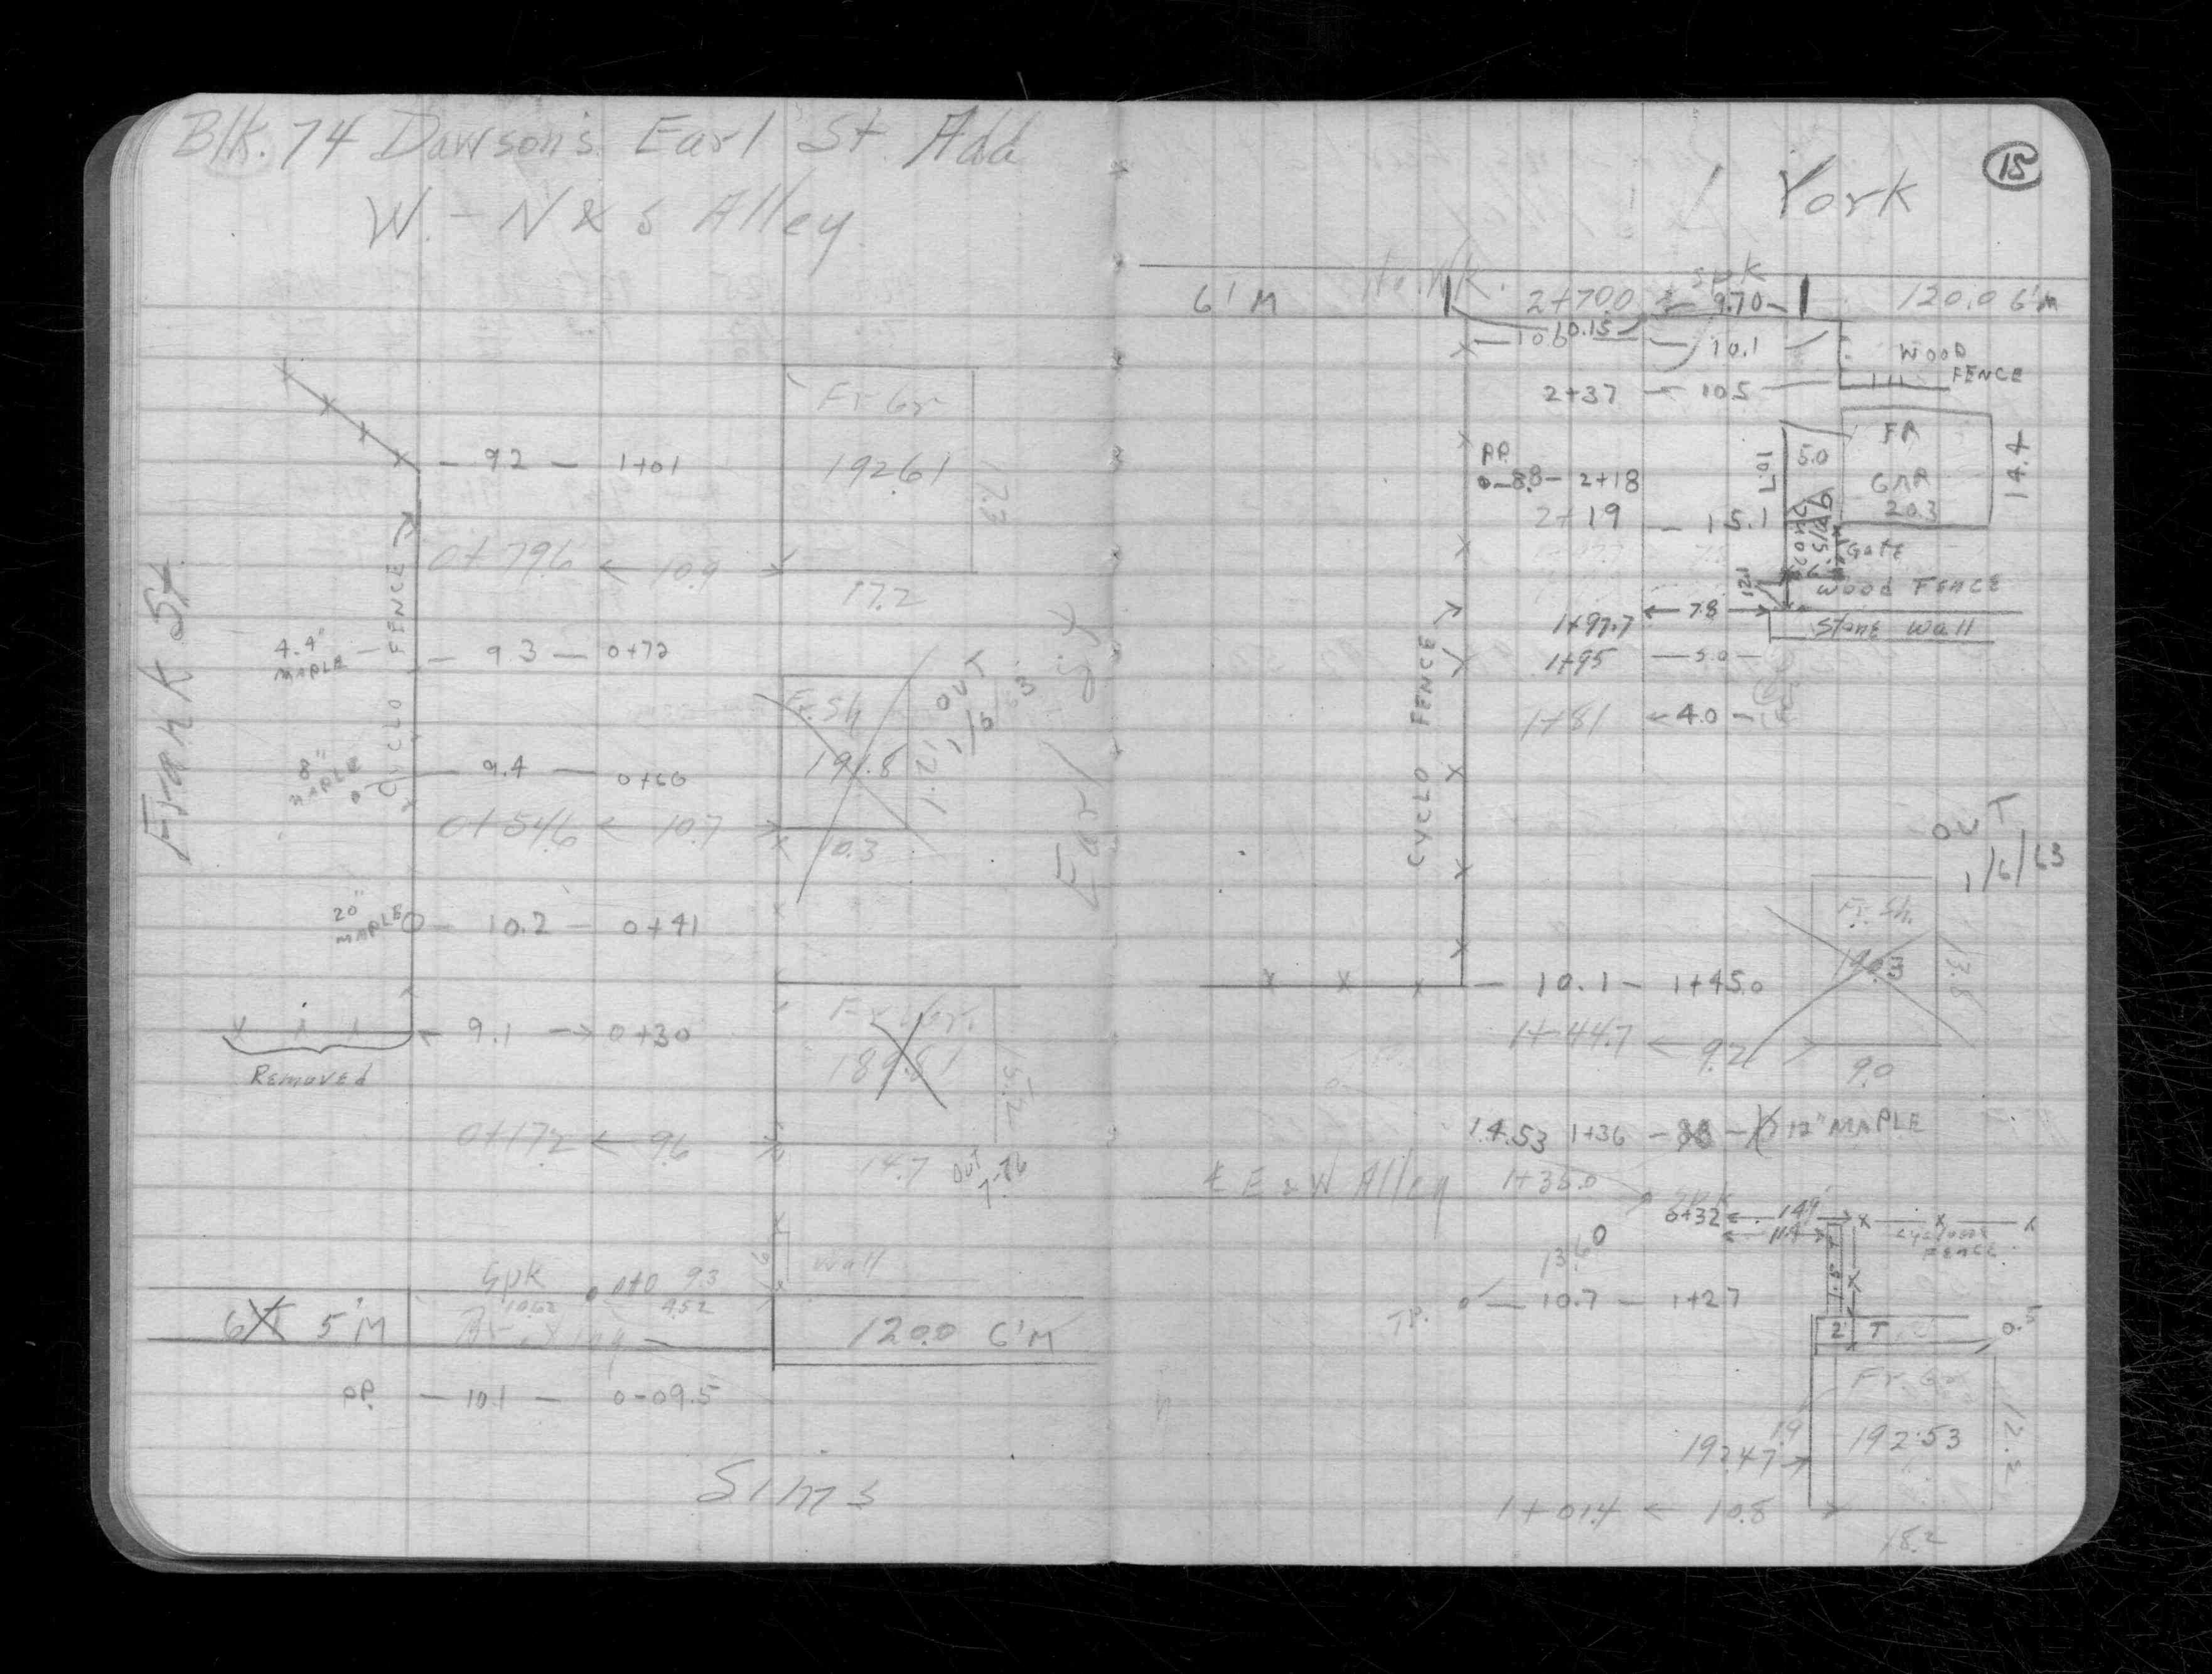 Blk. 74 Dawson's Earl St. Add
W. - N & S Alley
Frank St.
Earl St
CYCLO FENCE
- 9.2 - 1+01
Fr Gr
192.61
17.3
17.2
0+79.6 ← 10.9
4.4" MAPLE
- 9.3 - 0+72
Fr. Sh
191.8
12.1
10.3
OUT
8" MAPLE
- 9.4 - 0+60
0+54.6 ← 10.7
20" MAPLE
- 10.2 - 0+41
← 9.1 → 0+30
REMOVED
Fr. Gr.
189.81
14.7
OUT 7-76
0+17.2 ← 9.6
Wall
Spk 0+0 9.3
10.62 9.52
6' 5'M
120.0 6'M
PP. - 10.1 - 0-09.5
Sims
15
York
6'M
2+70.0
Spk
9.70
120.0 6'M
10.15
10.6
10.1
WOOD FENCE
2+37 - 10.5
FR
GAR
20.3
14.4
5.0
PP.
0-8.8- 2+18
2+19 - 15.1
CONC
GATE
WOOD FENCE
12.1
1+97.7 ← 7.8 →
Stone Wall
1+95 - 5.0 -
1+81 ← 4.0 -
CYCLO FENCE
OUT
1/6/63
Fr. Sh.
13.8
9.0
- 10.1 - 1+45.0
1+44.7 ← 9.2
14.53 1+36 12" MAPLE
℄ E & W Alley 1+35.0
Spk
0+32 ← 14.9 →
11.9
CYCLONE FENCE
13.60
TP. - 10.7 - 1+27
2' T
0.5
Fr. Gr
192.53
12.2
1.9
192.47 →
1+01.4 ← 10.8
18.2